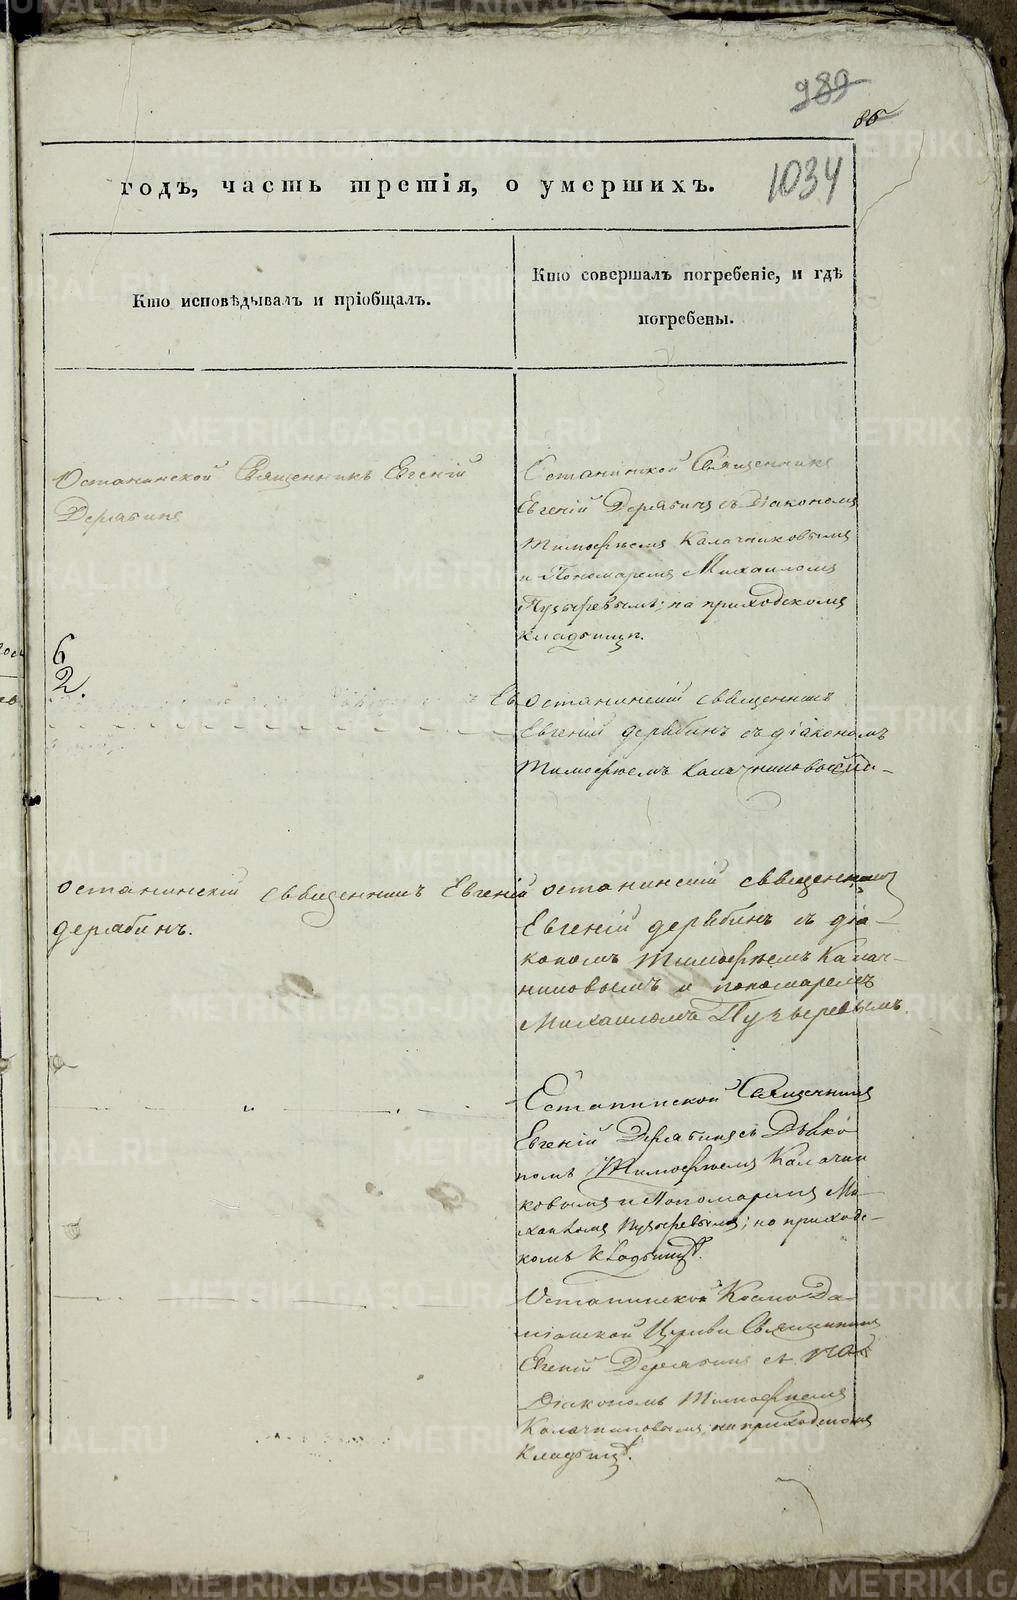 989
86
годъ, часть третія, о умершихъ.
1034
Кто исповѣдывалъ и пріобщалъ.
Кто совершалъ погребеніе, и гдѣ
погребены.
Останинской Священникъ Евгеній
Дерябинъ
Останинской Священникъ
Евгеній Дерябинъ съ Діакономъ
Тимофѣемъ Калачниковымъ
и Пономаремъ Михаиломъ
Пузыревымъ; на приходскомъ
кладбищѣ.
6
2.
Ев
останинскій священникъ
Евгеній дерябинъ съ діакономъ
Тимофѣемъ Калачниковымъ
останинскій священникъ Евгеній
дерябинъ.
останинскій священникъ
Евгеній дерябинъ съ діа-
кономъ Тимофѣемъ Калач-
никовымъ и пономаремъ
Михаиломъ Пузыревымъ.
Останинской Священникъ
Евгеній Дерябинъ съ Дьяко
номъ Тимофѣемъ Калачни
ковымъ и Пономаремъ Ми-
хаиломъ Пузыревымъ; на приходс-
комъ кладбищѣ.
Останинской Космо Да-
міанской Церкви Священникъ
Евгеній Дерябинъ съ
Діакономъ Тимофѣемъ
Калачниковымъ на приходскомъ
кладбищѣ.
METRIKI.GASO-URAL.RU